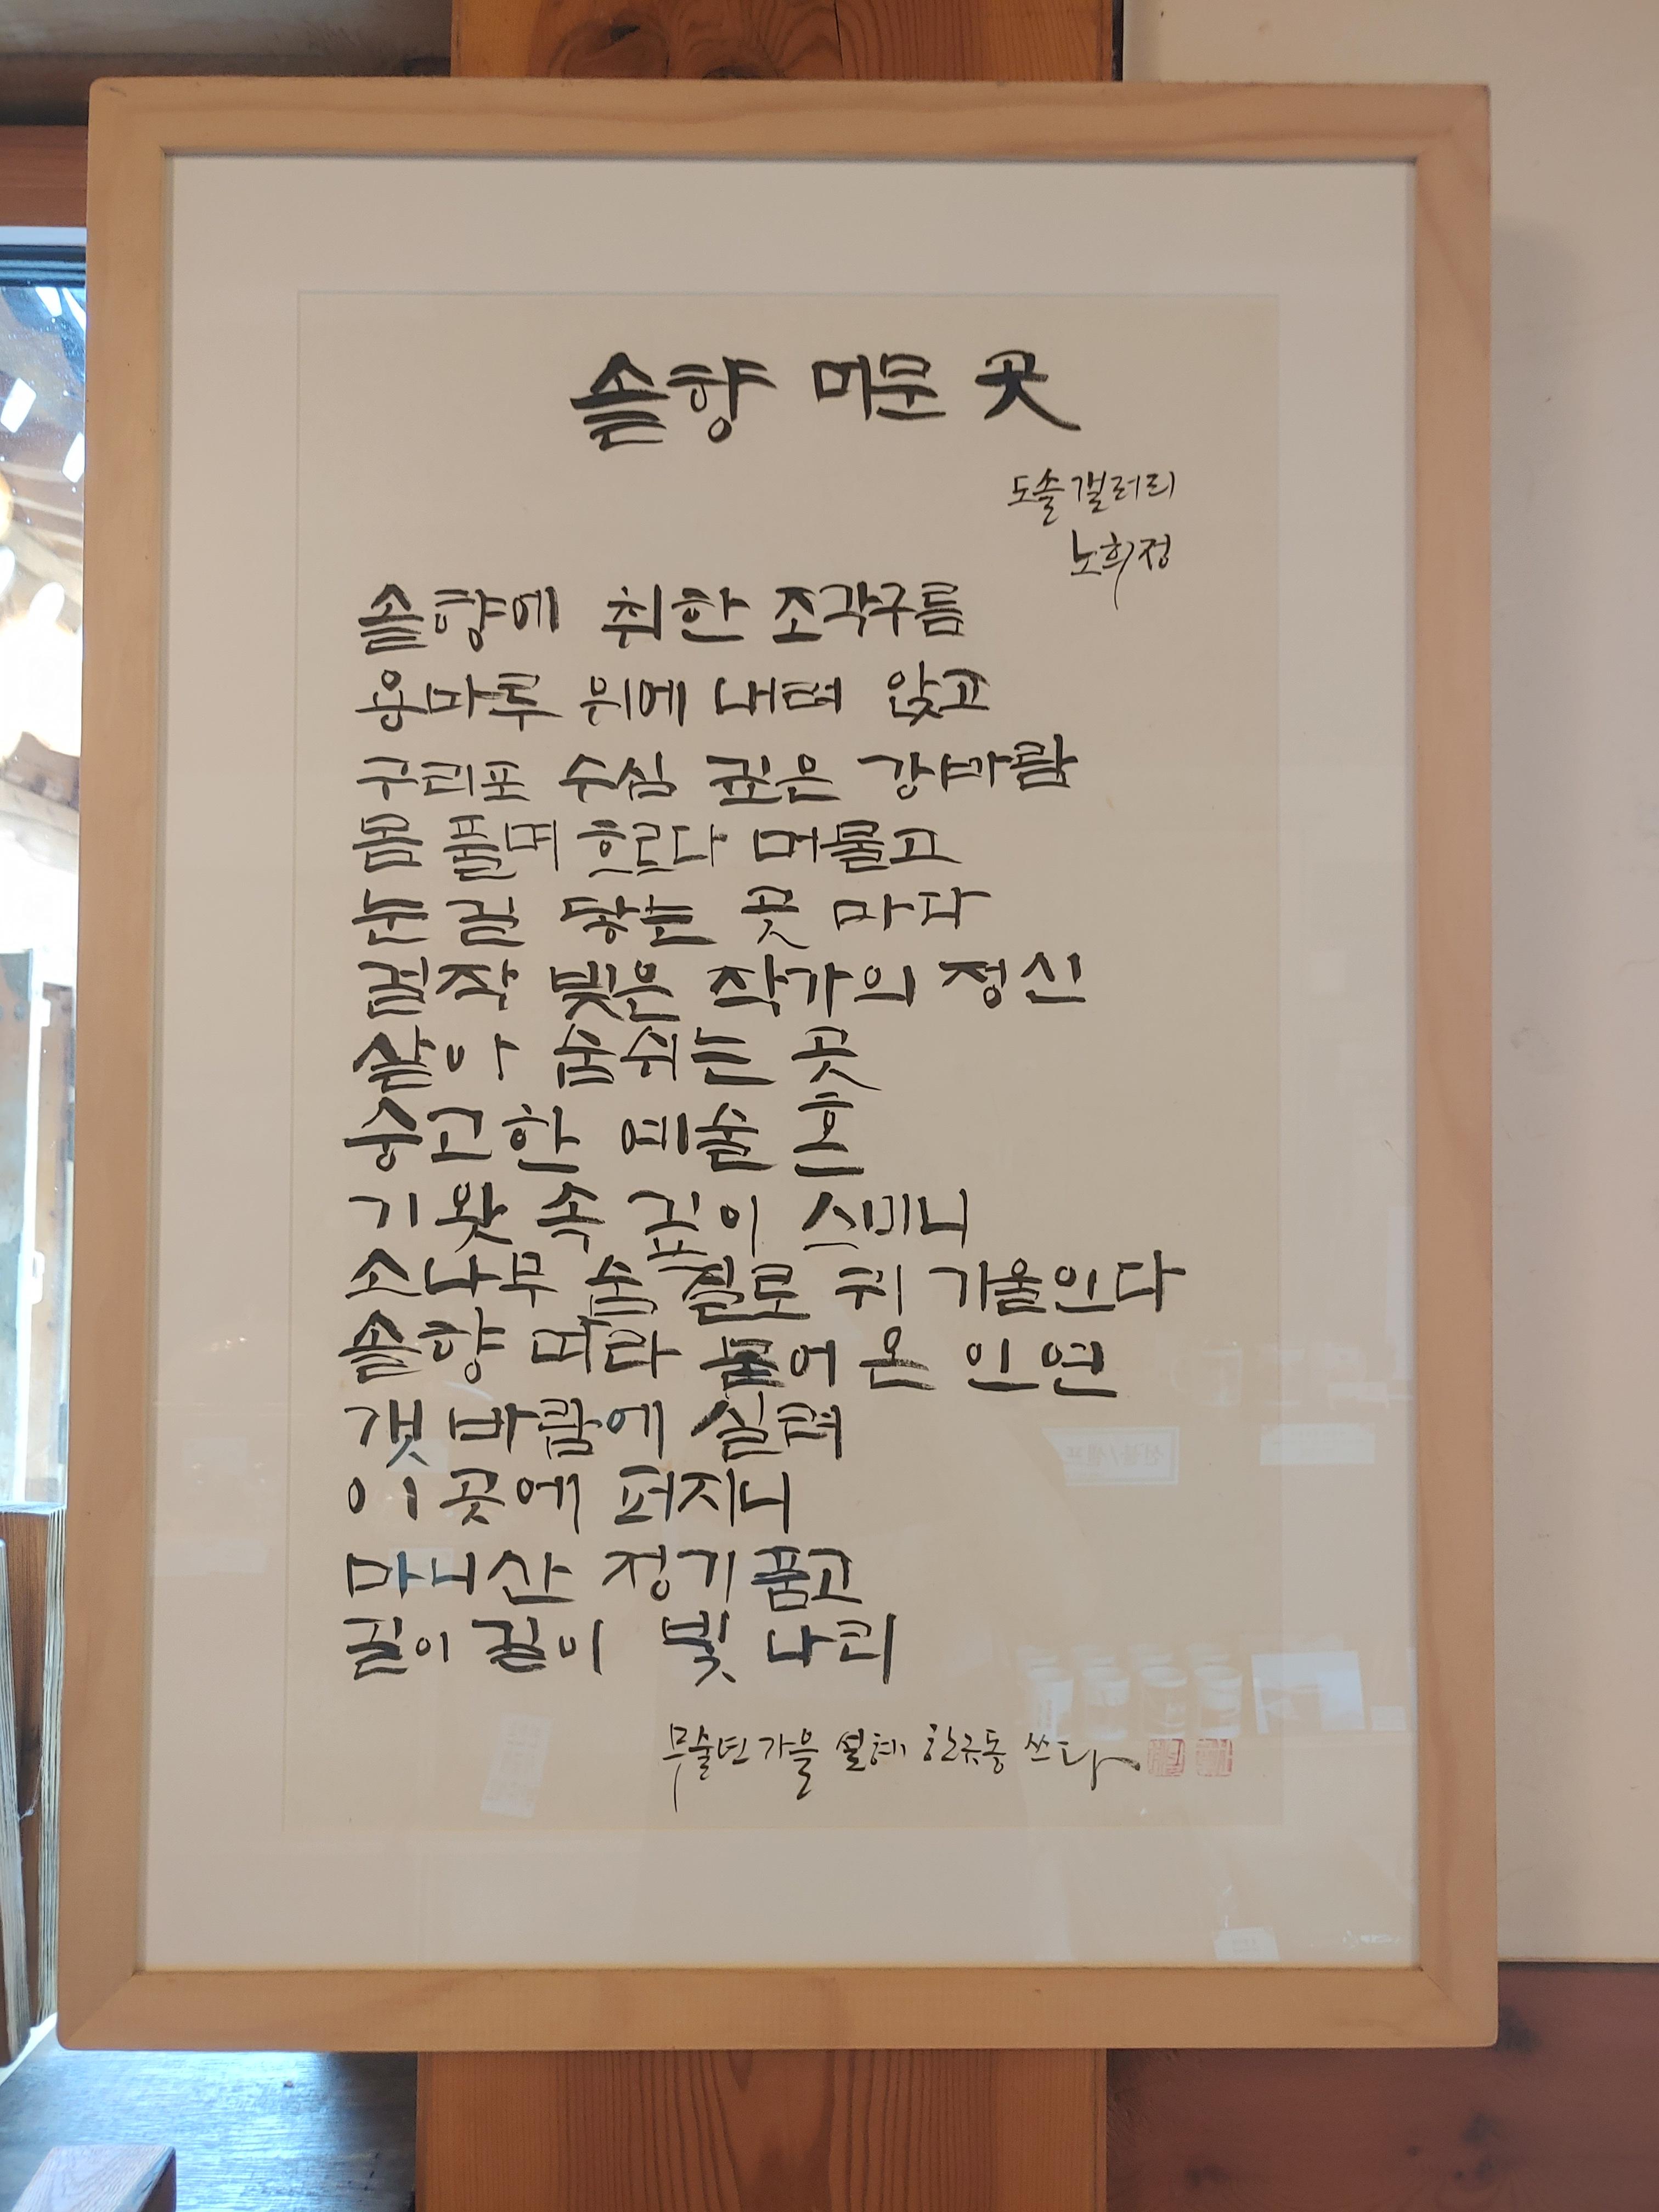 솔향 머문 곳
도솔갤러리
노희정
솔향에 취한 조각구름
용마루 위에 내려 앉고
구리포 수심 깊은 강바람
몸 풀며 흐르다 머물고
눈길 닿는 곳 마다
걸작 빚은 작가의 정신
살아 숨쉬는 곳
숭고한 예술 혼
기왓 속 깊이 스미니
소나무 숨결로 귀 기울인다
솔향 따라 물어 온 인연
갯바람에 실려
이 곳에 퍼지니
마니산 정기 품고
길이 길이 빛나리
무술년 가을 설헤 한규동 쓰다